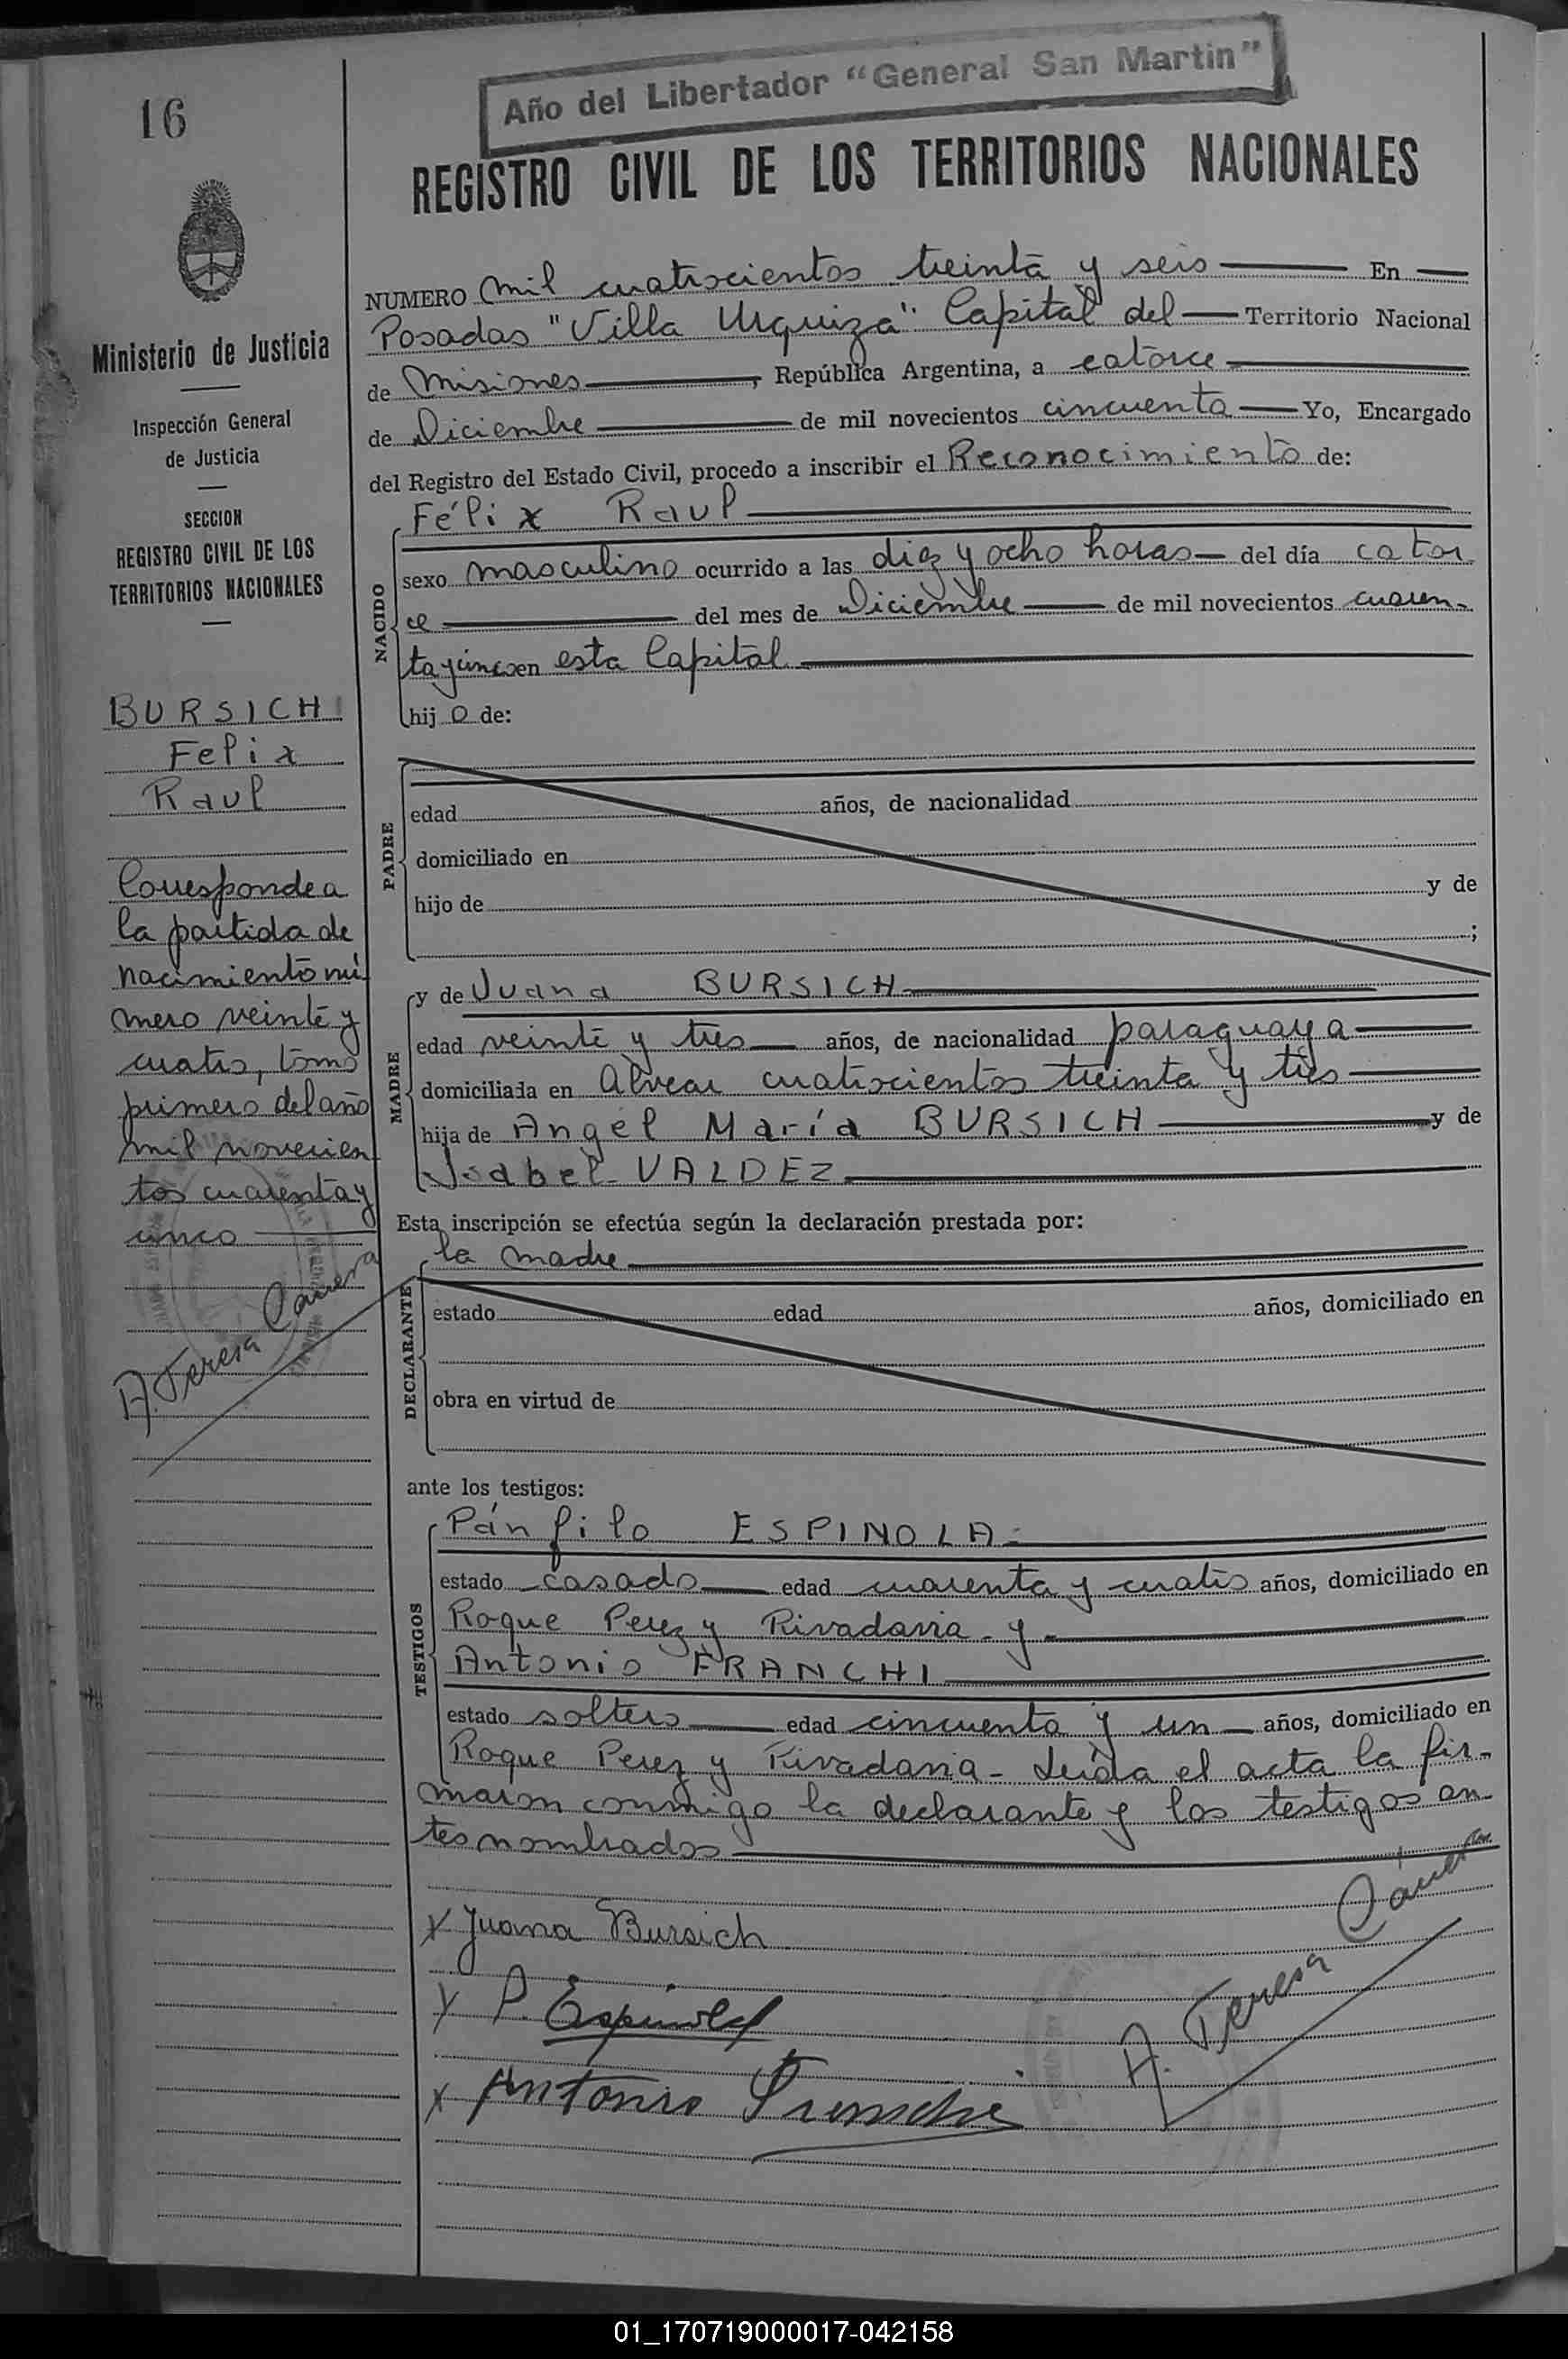 16
Año del Libertador “General San Martín”
REGISTRO CIVIL DE LOS TERRITORIOS NACIONALES
Ministerio de Justicia
Inspección General
de Justicia
SECCION
REGISTRO CIVIL DE LOS
TERRITORIOS NACIONALES
BURSICH
Felix
Raul
Corresponde a
la partida de
nacimiento nú
mero veinte y
cuatro, tomo
primero del año
mil novecien
tos cuarenta y
cinco
A. Teresa Cauera
NUMERO mil cuatrocientos treinta y seis En
Posadas "Villa Urquiza" Capital del Territorio Nacional
de Misiones, República Argentina, a catorce
de Diciembre de mil novecientos cincuenta Yo, Encargado
del Registro del Estado Civil, procedo a inscribir el Reconocimiento de:
NACIDO
Félix Raul
sexo masculino ocurrido a las diez y ocho horas del día cator
ce del mes de Diciembre de mil novecientos cuaren-
ta y cinco en esta Capital
hij o de:
PADRE
edad años, de nacionalidad
domiciliado en
hijo de y de
;
MADRE
y de Juana BURSICH
edad veinte y tres años, de nacionalidad paraguaya
domiciliada en Alvear cuatrocientos treinta y tres
hija de Angel María BURSICH y de
Isabel VALDEZ
Esta inscripción se efectúa según la declaración prestada por:
la madre
DECLARANTE
estado edad años, domiciliado en
obra en virtud de
ante los testigos:
TESTIGOS
Pánfilo ESPINOLA
estado casado edad cuarenta y cuatro años, domiciliado en
Roque Perez y Rivadavia - y -
Antonio FRANCHI
estado soltero edad cincuenta y un años, domiciliado en
Roque Perez y Rivadavia - Leída el acta la fir-
maron conmigo la declarante y los testigos an-
tes nombrados
x Juana Bursich
x P. Espinola
x Antonio Franchi
A. Teresa
01_170719000017-042158